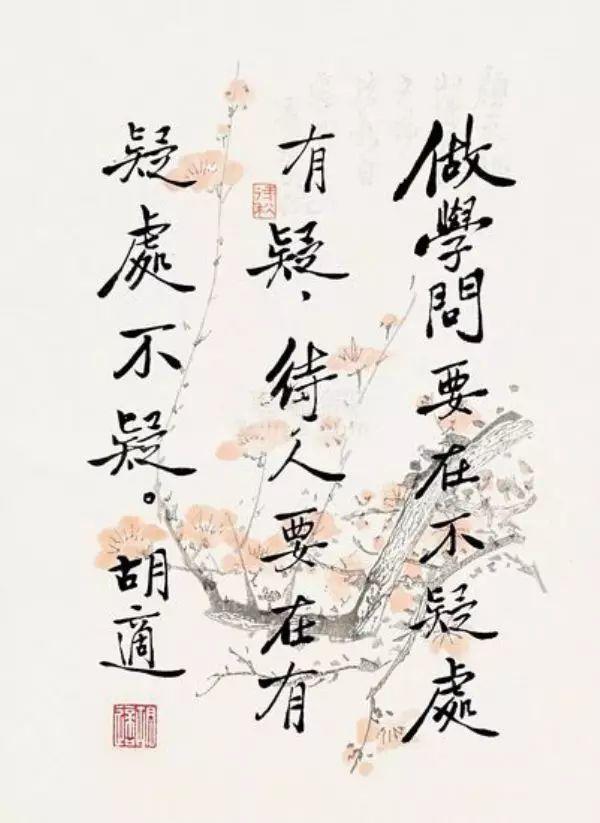 做學問要在不疑處
有疑、待人要在有
疑處不疑。胡適